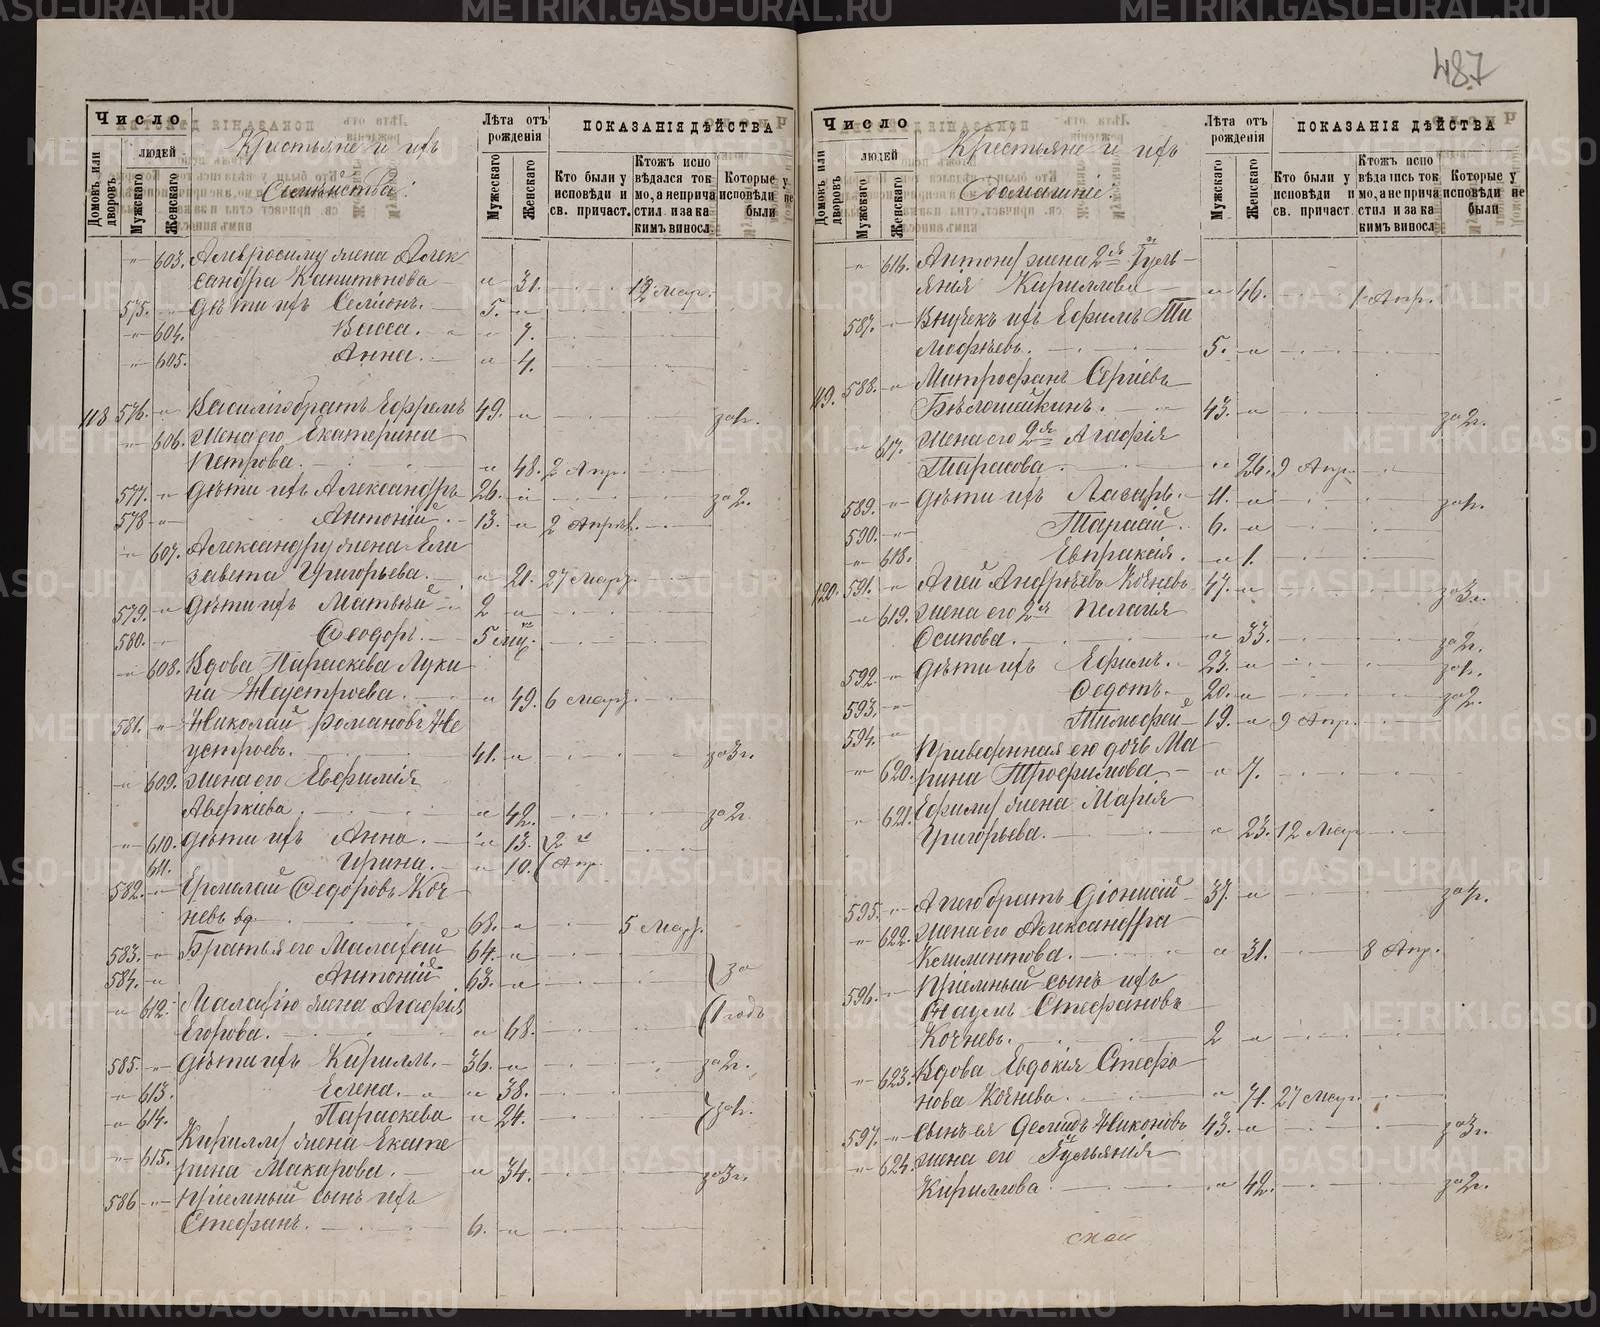 487
Число
людей
Домовъ или дворовъ
Мужскаго
Женскаго
Крестьяне и ихъ
Семейства:
Лѣта отъ рожденія
Мужескаго
Женскаго
ПОКАЗАНІЯ ДѢЙСТВА
Кто были у исповѣди и св. причаст.
Ктожъ испо вѣдался ток мо, а не прича стил и за ка кимъ виносл.
Которые у исповѣди не были
" 603. Амвросиму жена Алек
сандра Капитонова " 31. 12 Мар.
575. " Дѣти ихъ Селіонъ. 5. "
" 604. Васса. " 7.
" 605. Анна. " 4.
118 576. " Василію братъ Ефремъ 49. " за 1г.
" 606. Жена его Екатерина
Петрова. " 48. 2 Апр.
577. " Дѣти ихъ Александръ 26. " за 2.
578 " Антоній. 13. " 2 Апрѣл.
" 607. Александру жена Ели
завета Григорьева. " 21. 27 Мар.
579. " Дѣти ихъ Матвѣй 2 "
580. " Ѳеодоръ. 5 мц.
" 608. Вдова Параскева Луки
на Неустроева. " 49. 6 Мар.
581. " Николай Романовъ Не
устроевъ. 41. " за 3г.
" 609. Жена его Евфимія
Аверкіева. " 42. за 2г.
" 610. Дѣти ихъ Анна. " 13. 2
611. Ирина. " 10. Апр.
582. " Ермолай Ѳедоровъ Коч
невъ вд. 68. " 5 Мар.
583. " Братья его Малафей 64. "
584. " Антоній 63. " за
" 612. Малафію жена Агафія 1 годъ
Егорова. " 68.
585. " Дѣти ихъ Кириллъ. 36. " за 2г.
" 613. Елена. " 38.
" 614. Параскева " 24. за 1г.
" 615. Кириллу жена Екате
рина Макарова. " 34. за 3г.
586 " Пріемный сынъ ихъ
Стефанъ. 6. "
Число
людей
Домовъ или дворовъ
Мужскаго
Женскаго
Крестьяне и ихъ
Домашніе
Лѣта отъ рожденія
Мужскаго
Женскаго
ПОКАЗАНІЯ ДѢЙСТВА
Кто были у исповѣди и св. причаст
Ктожъ испо вѣдались ток мо, а не прича стил и за ка кимъ виносл
Которые у исповѣди не были
" 616. Антону жена 2я Іуль
янія Кириллова " 46. 1 Апр.
587. " Внучекъ ихъ Ефимъ Ти
мофѣевъ. 5. "
119. 588. " Митрофанъ Сергіевъ
Бѣлошейкинъ. 43. " за 2г.
" 617. Жена его 2я Агафія
Тарасова. " 26. 9 Апр.
589. " Дѣти ихъ Лазарь. 11. " за 1г.
590. " Тарасій. 6. "
" 618. Евпраксія. " 1.
120. 591. " Агей Андрѣевъ Кочневъ 47. " за 3г.
" 619. Жена его 2я Пелагія
Осипова. " 33. за 2г.
592. " Дѣти ихъ Ефимъ. 23. " за 1г.
593. " Ѳедотъ. 20. " за 2.
594. " Тимофей 19. " 9 Апр.
" 620. Приведенная ею дочь Ма
рина Трофимова " 7.
" 621. Ефиму жена Марія
Григорьева. " 23. 12 Мар
595. " Агею братъ Діонисій 37. " за 1г.
" 622. Жена его Александра
Климентова. " 31. 8 Апр.
596. " Пріемный сынъ ихъ
Наумъ Стефановъ
Кочневъ. 2 "
" 623. Вдова Евдокія Стефа
нова Кочнева. " 71. 27 Мар.
597. " Сынъ ея Демидъ Никоновъ 43. " за 3г.
" 624. Жена его Іульянія
Кириллова " 42. за 2г.